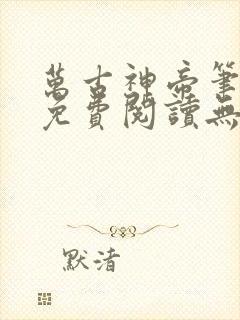 萬古神帝筆
免費閱讀無
默渚